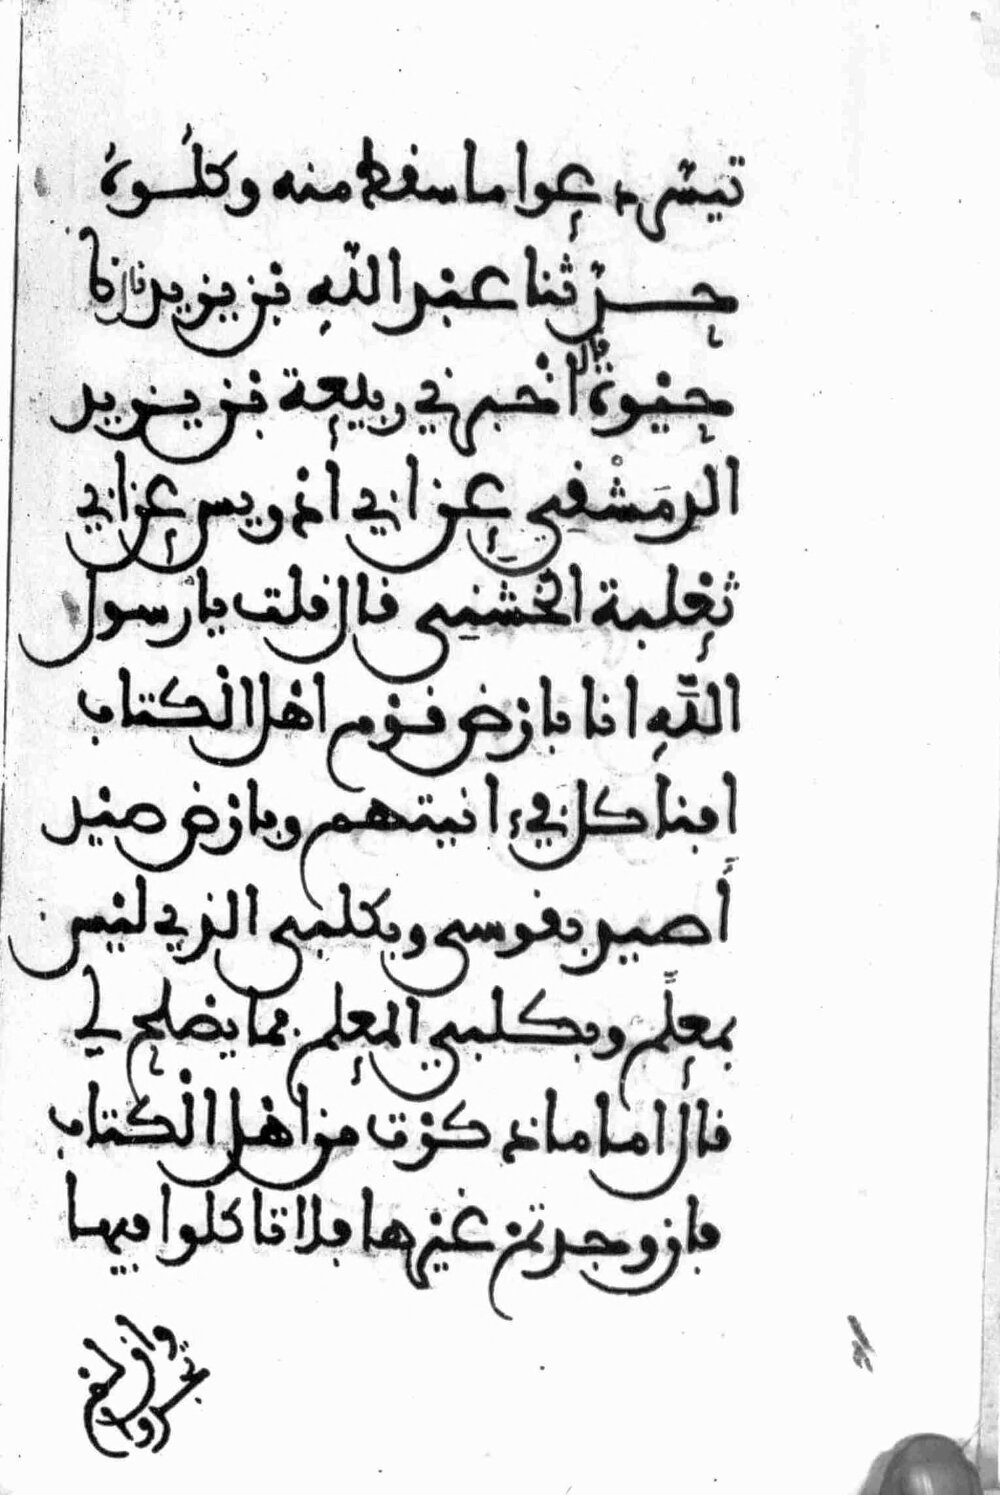 تيسر دعوا ما سقط منه وكلوه
حدثنا عبد الله بن يزيد نا
حيوة قال أخبرني ربيعة بن يزيد
الدمشقي عن ابي ادريس عن ابي
ثعلبة الخشني قال قلت يا رسول
الله انا بارض قوم اهل الكتاب
افناكل في ءانيتهم وبارض صيد
أصيد بقوسي وبكلبي الذي ليس
بمعلم وبكلبي المعلم مما يصلح لي
قال اما ما ذكرت من اهل الكتاب
فان وجدتم غيرها فلا تاكلوا فيها
وان لم
تجدوا